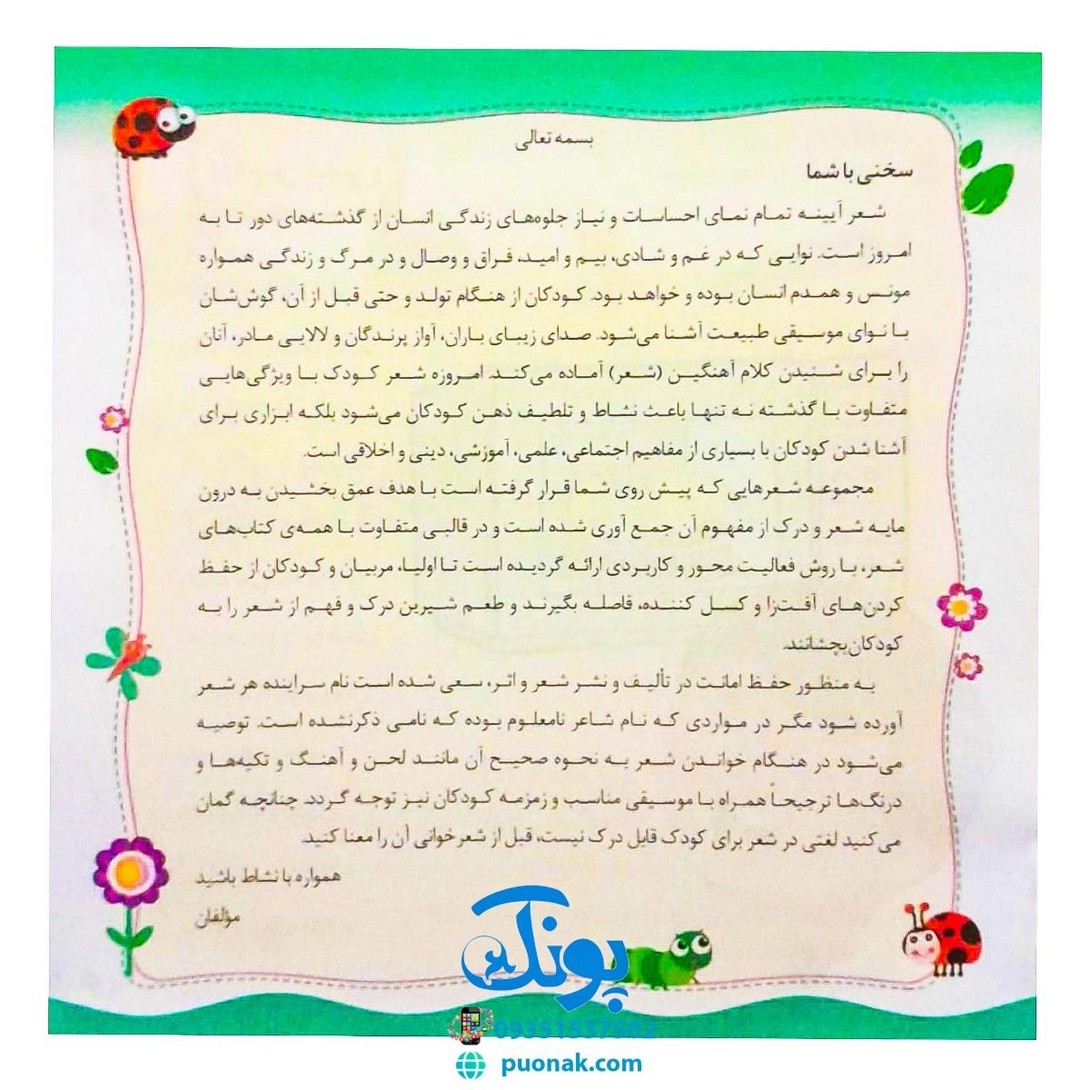 بسمه تعالی
سخنی با شما
شعر آیینه تمام نمای احساسات و نیاز جلوه‌های زندگی انسان از گذشته‌های دور تا به
امروز است. نوایی که در غم و شادی، بیم و امید، فراق و وصال و در مرگ و زندگی همواره
مونس و همدم انسان بوده و خواهد بود. کودکان از هنگام تولد و حتی قبل از آن، گوش‌شان
با نوای موسیقی طبیعت آشنا می‌شود. صدای زیبای باران، آواز پرندگان و لالایی مادر، آنان
را برای شنیدن کلام آهنگین (شعر) آماده می‌کند. امروزه شعر کودک با ویژگی‌هایی
متفاوت با گذشته نه تنها باعث نشاط و تلطیف ذهن کودکان می‌شود بلکه ابزاری برای
آشنا شدن کودکان با بسیاری از مفاهیم اجتماعی، علمی، آموزشی، دینی و اخلاقی است.
مجموعه شعرهایی که پیش روی شما قرار گرفته است با هدف عمق بخشیدن به درون
مایه شعر و درک از مفهوم آن جمع آوری شده است و در قالبی متفاوت با همه‌ی کتاب‌های
شعر، با روش فعالیت محور و کاربردی ارائه گردیده است تا اولیا، مربیان و کودکان از حفظ
کردن‌های آفت‌زا و کسل کننده، فاصله بگیرند و طعم شیرین درک و فهم از شعر را به
کودکان‌بچشانند.
به منظور حفظ امانت در تألیف و نشر شعر و اثر، سعی شده است نام سراینده هر شعر
آورده شود مگر در مواردی که نام شاعر نامعلوم بوده که نامی ذکرنشده است. توصیه
می‌شود در هنگام خواندن شعر به نحوه صحیح آن مانند لحن و آهنگ و تکیه‌ها و
درنگ‌ها ترجیحاً همراه با موسیقی مناسب و زمزمه کودکان نیز توجه گردد. چنانچه گمان
می‌کنید لغتی در شعر برای کودک قابل درک نیست، قبل از شعرخوانی آن را معنا کنید.
همواره با نشاط باشید
مؤلفان
پونک
puonak.com